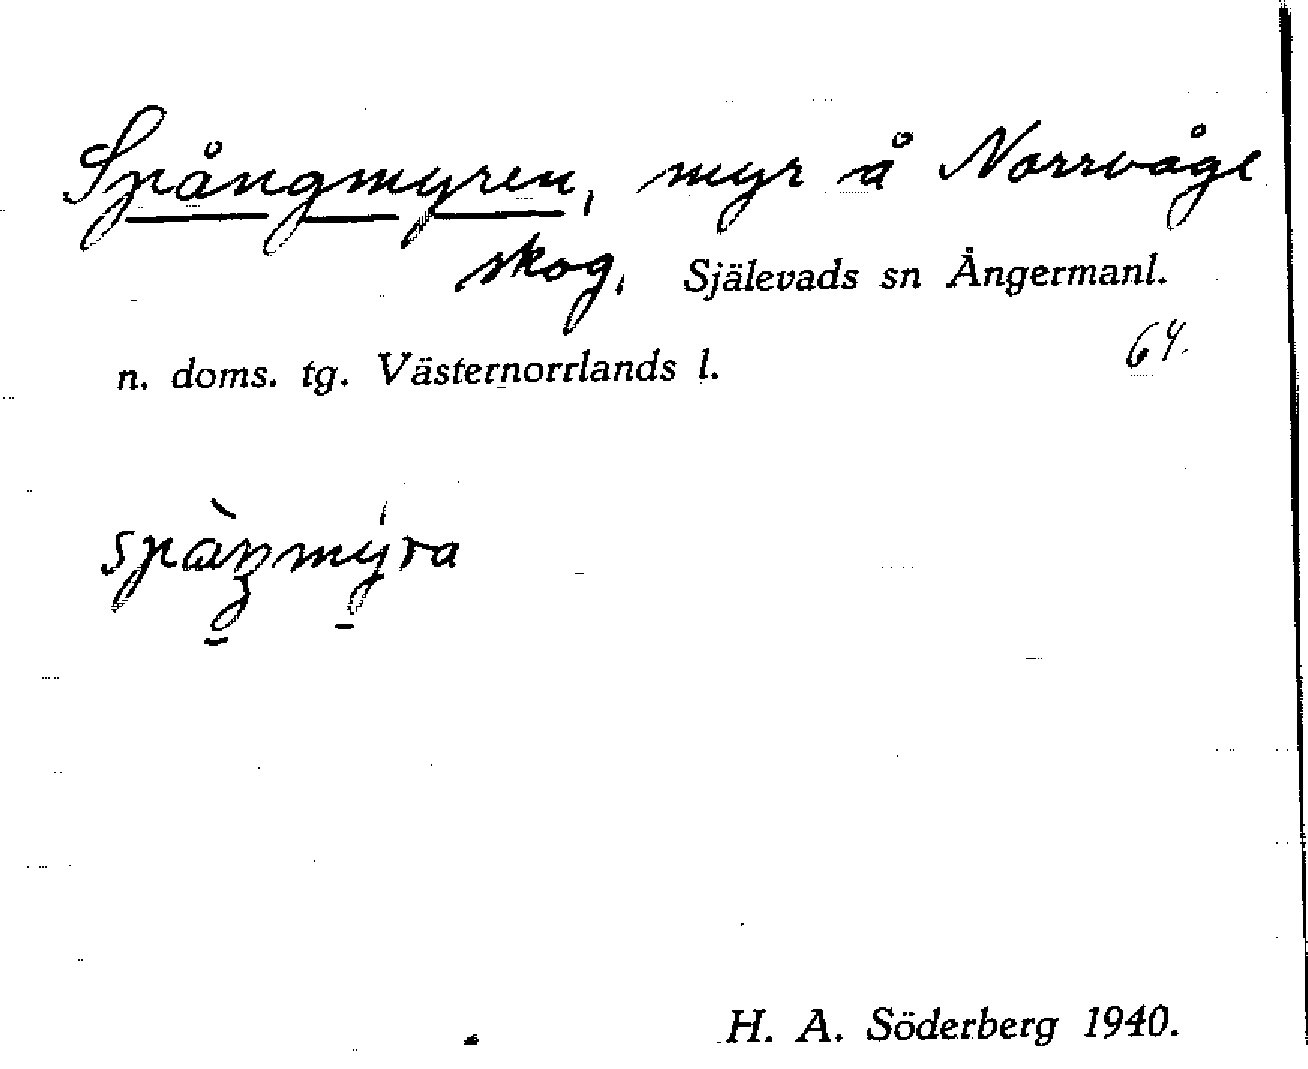 Spångmyren, myr å Norrvåge
skog, Själevads sn Ångermanl.
64.
n. doms. tg. Västernorrlands l.
H. A. Söderberg 1940.